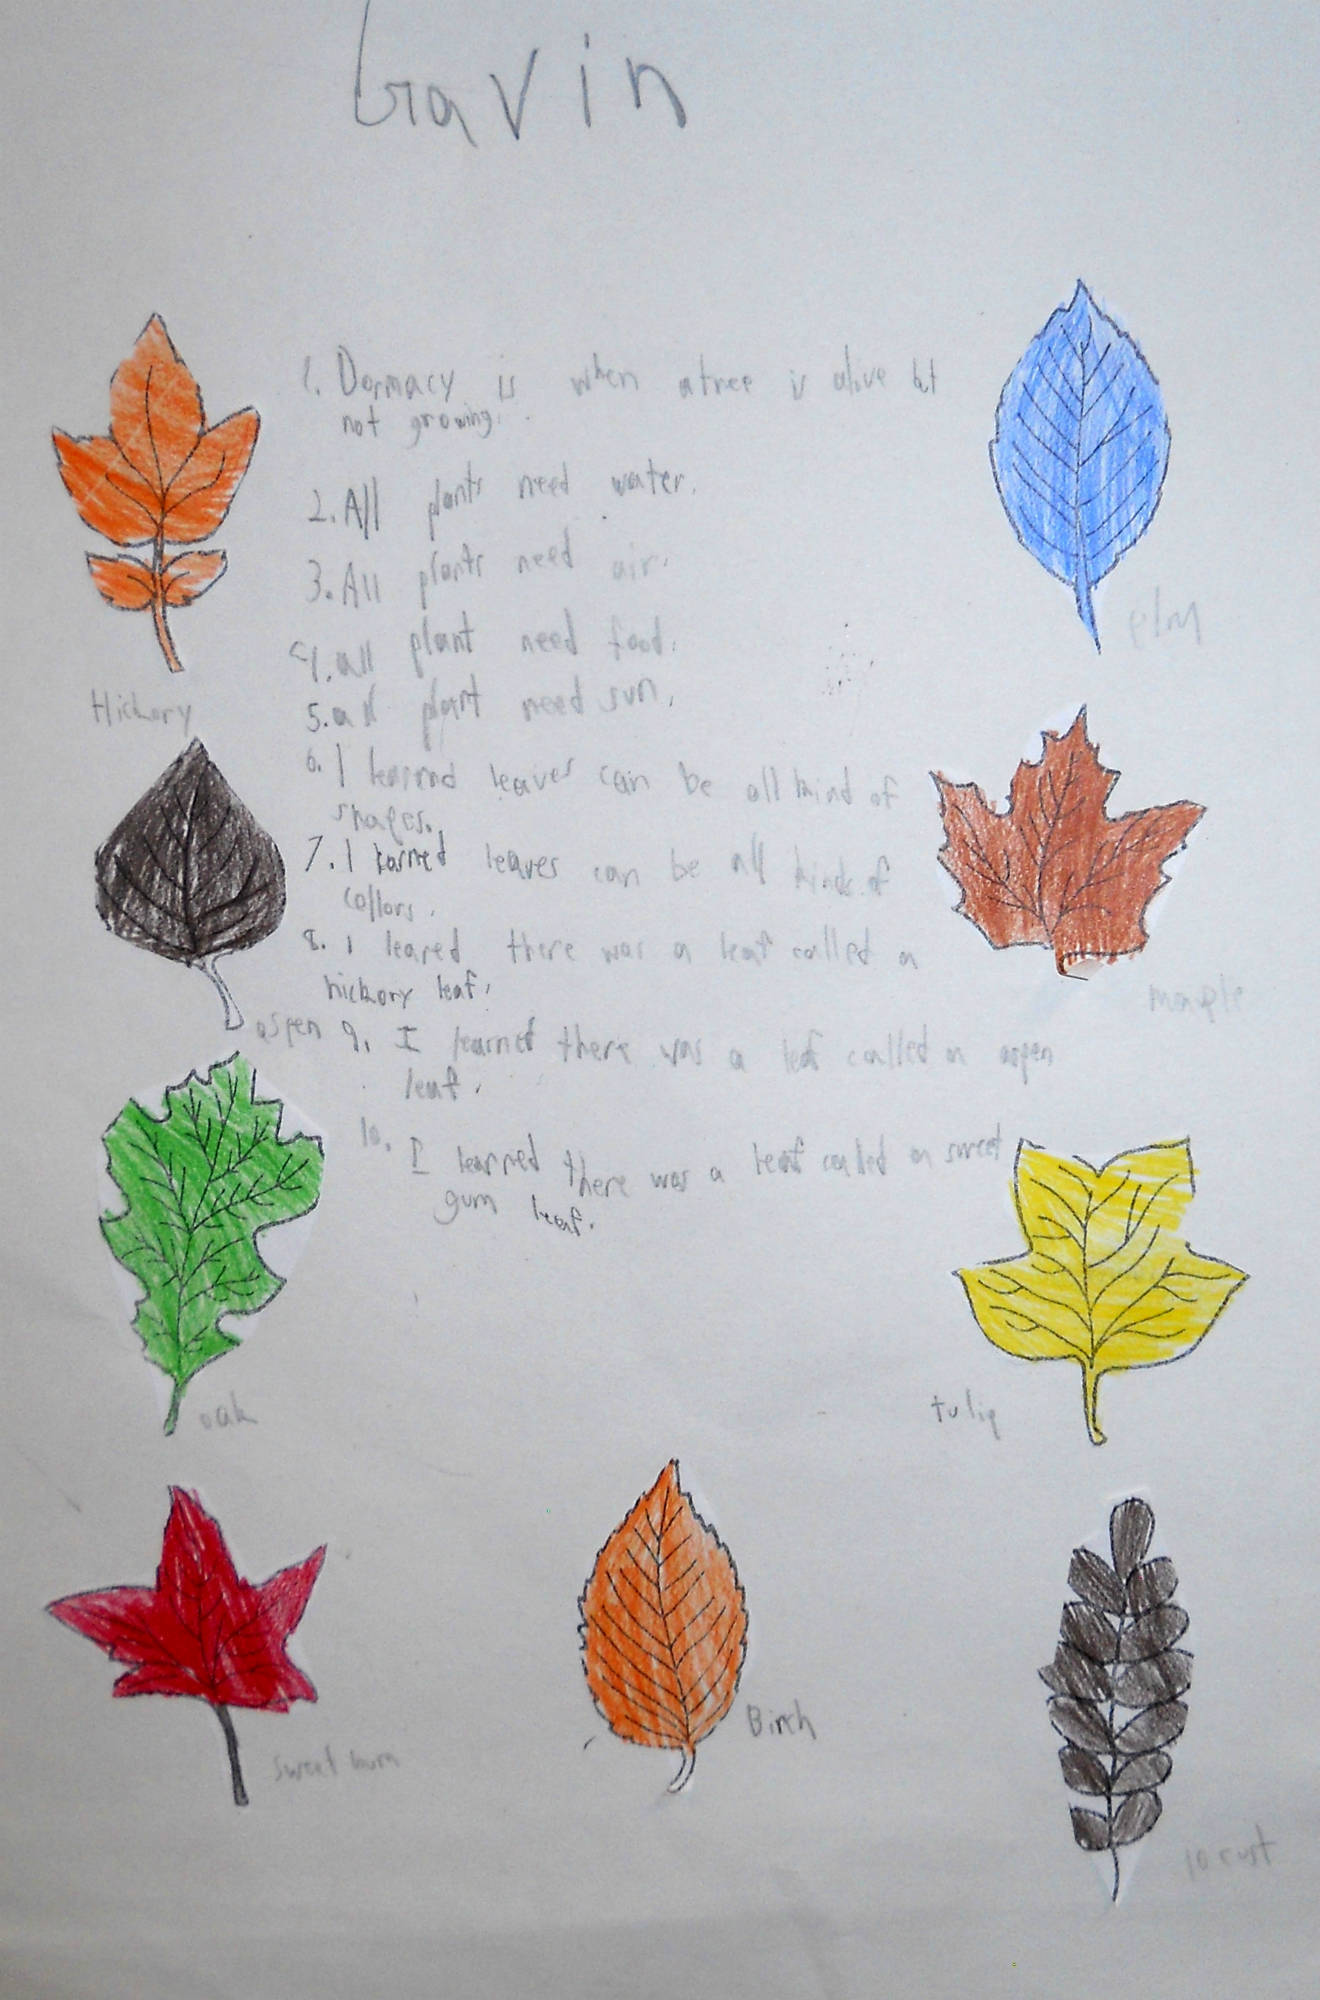 Gavin
1. Dormacy is when a tree is alive but
not growing.
2. All plants need water.
3. All plants need air.
4. all plant need food.
5. all plant need sun.
6. I learned leaves can be all kind of
shapes.
7. I learned leaves can be all kinds of
collors.
8. I leared there was a leaf called a
hickory leaf.
9. I learned there was a leaf called a aspen
leaf.
10. I learned there was a leaf called a sweet
gum leaf.
Hickory
elm
aspen
maple
oak
tulip
sweet
Birch
locust